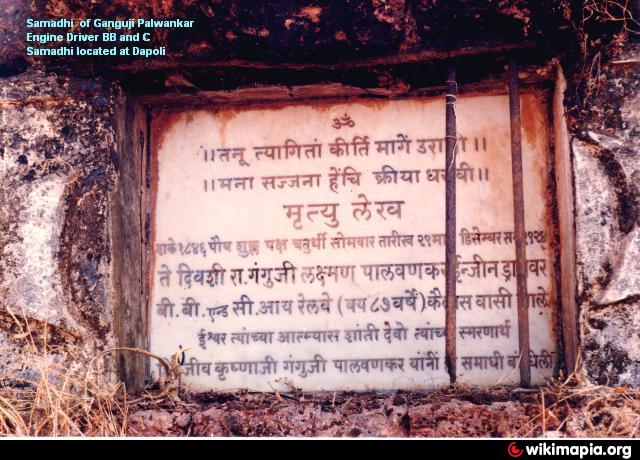 Samadhi of Ganguji Palwankar
Engine Driver BB and C
Samadhi located at Dapoli
ॐ
।।तनू त्यागितां कीर्ति मागें ।।
।।मना सज्जना हेंचि क्रीया ।।
मृत्यु लेख
शके १८४६ पौष शुक्ल पक्ष चतुर्थी सोमवार तारीख २९ डिसेम्बर
ते दिवशी रा. गंगुजी लक्ष्मण पालवणकर ईन्जीन
बी. बी. एन्ड सी. आय रेलवे (वय ८७ वर्षें) वासी
ईश्वर त्यांच्या आत्म्यास शांती देवो त्यांच्या स्मरणार्थ
कृष्णाजी गंगुजी पालवणकर यांनीं समाधी
wikimapia.org